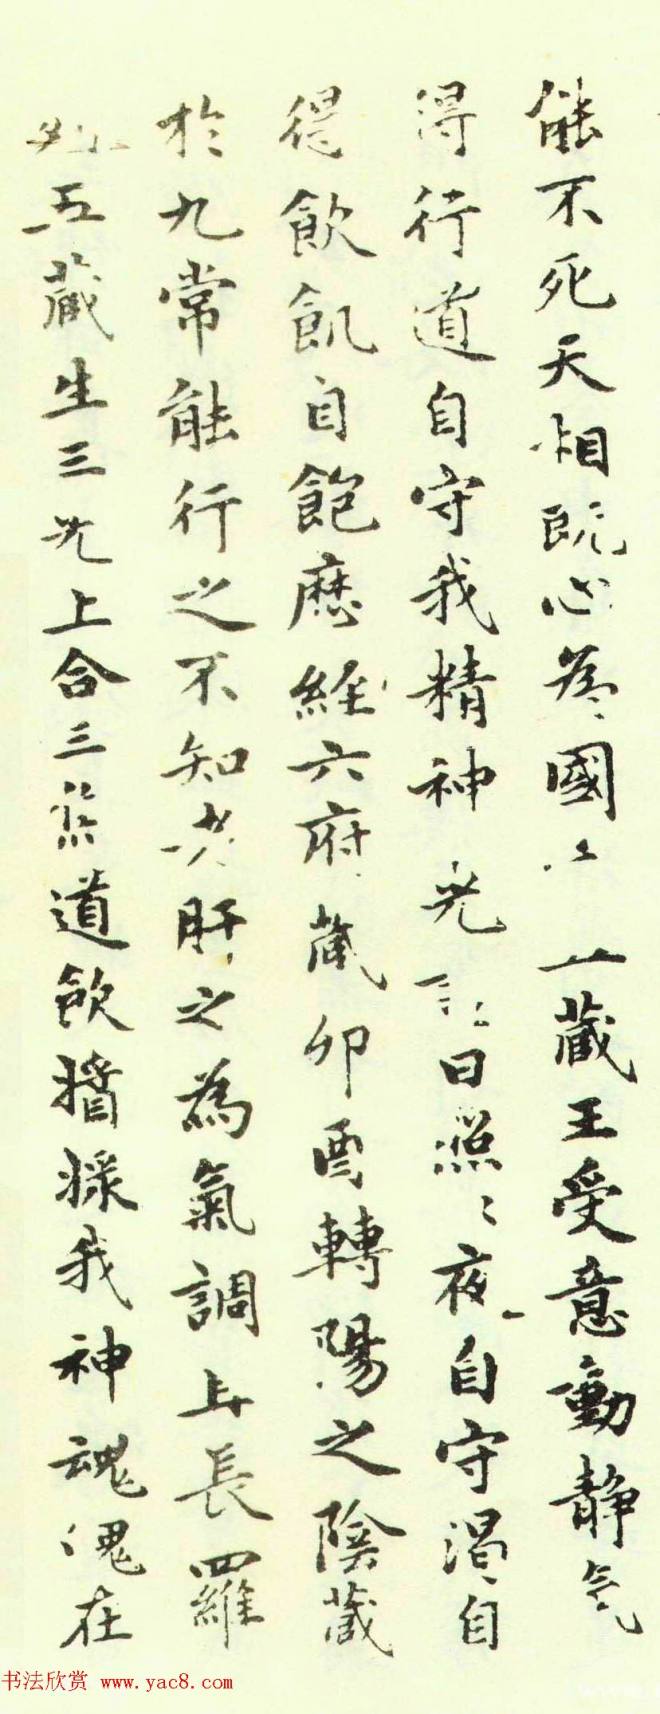 能不死天相既心為國主五藏王受意動静氣
得行道自守我精神光明日照照夜自守渴自
得飲飢自飽歷經六府藏卯酉轉陽之陰藏
於九常能行之不知老肝之為氣調且長羅
列五藏生三光上合三焦道飲醬漿我神魂魄在
书法欣赏 www.yac8.com